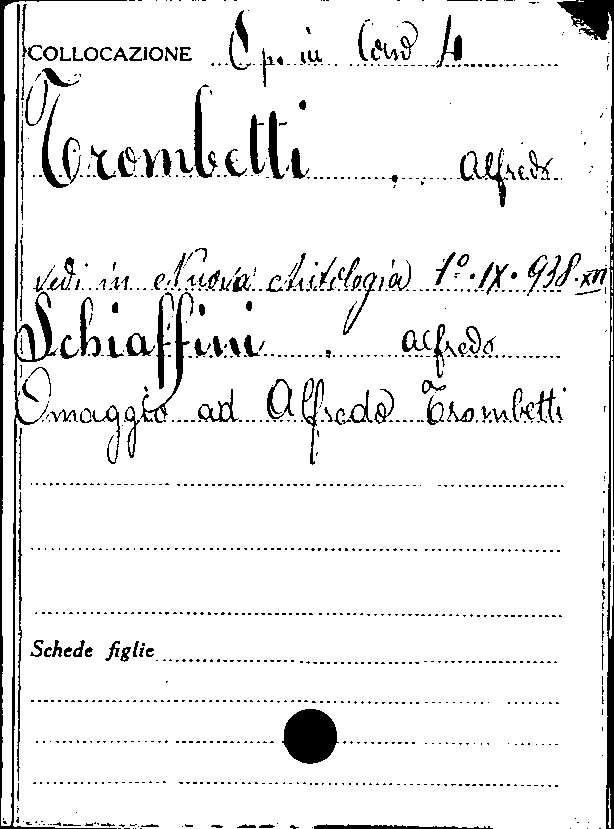 COLLOCAZIONE Op. in Cons 4
Trombetti . Alfredo
vedi in Nuova Antologia 1º.IX.938.XVI
Schiaffini . Alfredo
Omaggio ad Alfredo Trombetti
Schede figlie